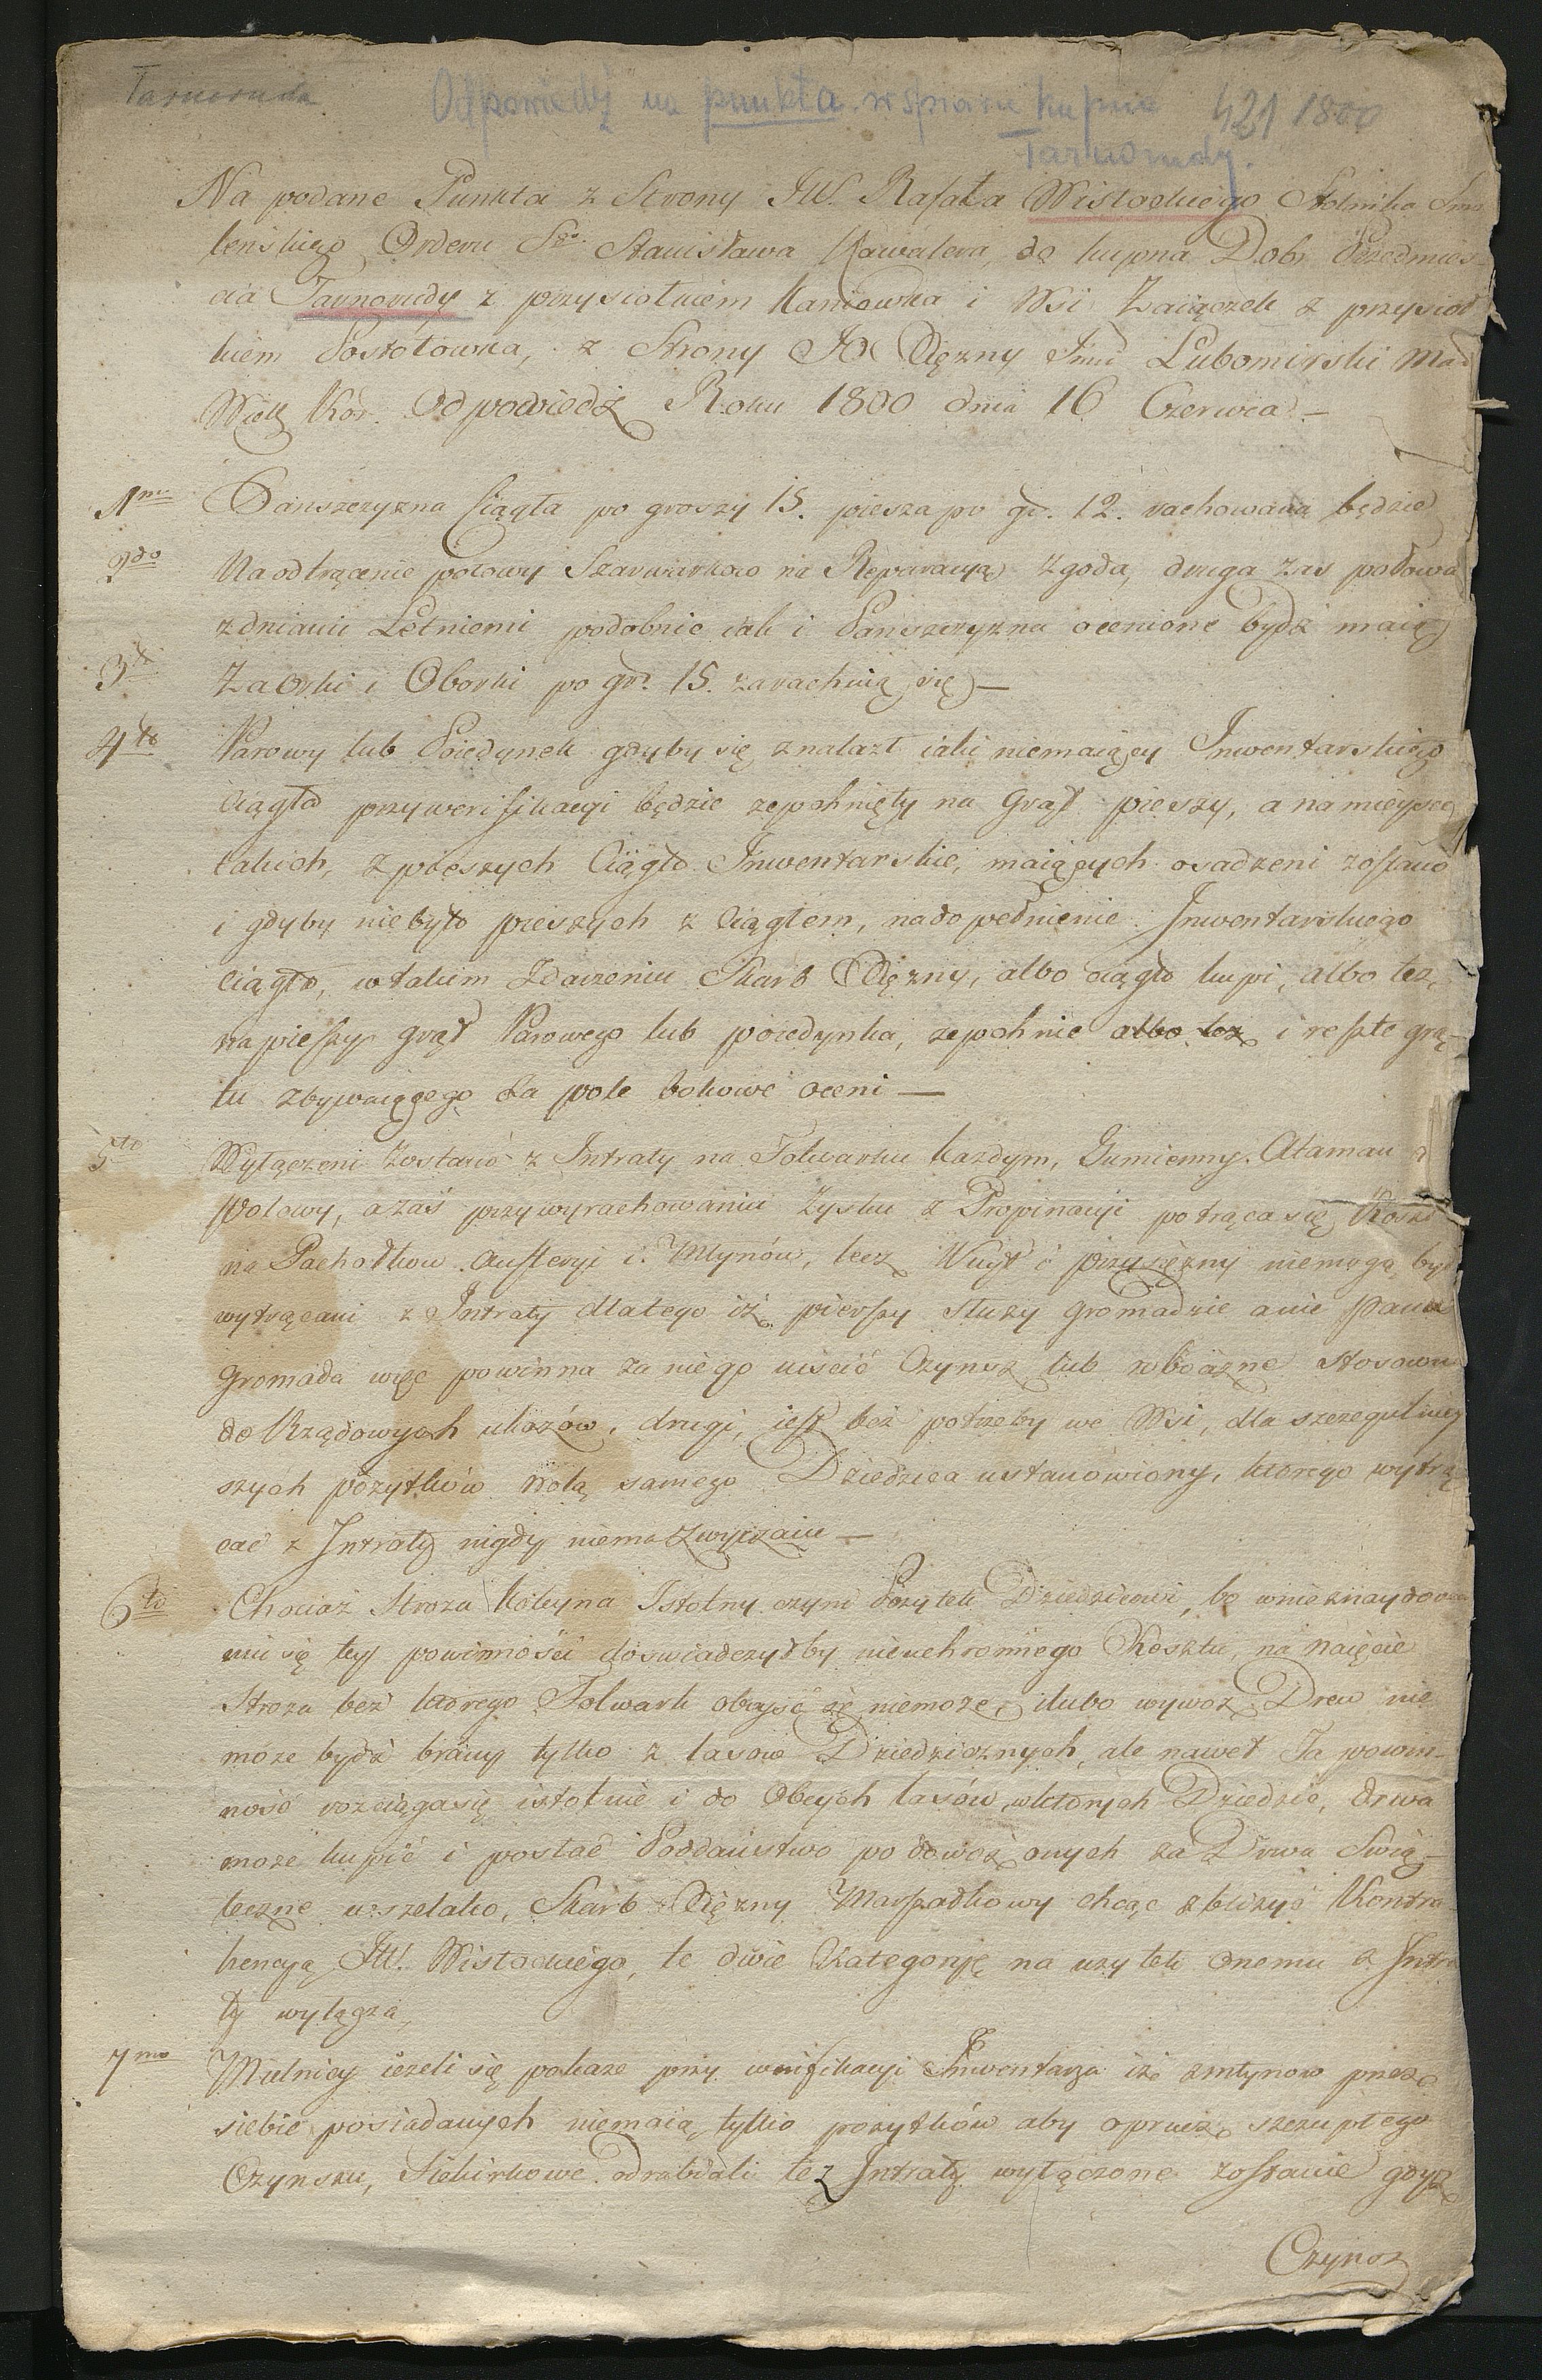 Tarnoruda
Odpowiedź na punkta w sprawie kupna 421 1800
Tarnorudy.
Na podane Punkta z Strony JW. Rafała Wisłockiego Stolnika Smo
leńskiego Orderu Sgo. Stanisława Kawalera, do kupna Dobr Przedmieś-
cia Tarnorudy z przysiołkiem Kaniowka i Wsi Zaiączek z przysioł
kiem Postołowka, z Strony JO Xiężny Jmci Lubomirski Mar
Wielk Kor. Odpowiedź Roku 1800 dnia 16 Czerwca. —
1mo Panszczyzna Ciągła po groszy 15. piesza po gr. 12. rachowana będzie
2do Na odtrącenie połowy Szarwarkow na Reparacyą zgoda, druga zas połowa
z dniami Letniemi podobnie iak i Panszczyzna ocenione bydź maią
3o Zaorki i Oborki po gr. 15. zarachuią się —
4to Parowy lub Poiedynek gdyby się znalazł iaki niemaiący Inwentarskiego
ciągła przy werifikacyi będzie zepchnięty na Grąt pieszy, a na mieysce
takich, z pieszych Ciągło Inwentarskie, maiących osadzeni zostano
i gdyby niebyło pieszych z Ciągłem, na dopełnienie Inwentarskiego
ciągło, w takim zdarzeniu Skarb Xiężny, albo ciągło kupi, albo tez,
na pieszy grąt Parowego lub poiedynka, zepchnie albo tez i reszte grą-
tu zbywaiącego za pole bokowe oceni —
5to Wyłączeni zostanio z Intraty na Folwarku każdym, Gumienny. Ataman i
Polowy, a zaś przy wyrachowaniu Zysku z Propinacyi potrąca się Koszt
na Pachołkow Austeryi i Młynów, lecz Wuyt i przysiężny niemogą być
wytrącani z Intraty dlatego iż pierszy służy gromadzie a nie Panu
gromada więc powinna za niego uiścić Czynsz lub robocizne stosownie
do Rządowych ukazów, drugi, iest bez potrzeby we Wsi, dla szczegulniey
szych pożytków wolą samego Dziedzica ustanowiony, ktorego wytrą
cać z Intraty nigdy niema zwyczaiu —
6to Chociaż Stroza Koleyna Istotny czyni Pozytek Dziedzicowi, bo w nieznaydowa
niu się tey powinności doswiadczyłby nieuchronnego Kosztu, na naięcie
Stroza bez ktorego Folwark obeyść się niemoze, i lubo wywoz Drew nie
moze bydź brany tylko z lasow Dziedzicznych, ale nawet Ta powin-
ność rozciąga się istotnie i do Obcych lasów, w ktorych Dziedzic, drwa
moze kupić i posłać Poddaństwo po dowoz onych za Drwa Swią-
teczne wszelako, Skarb Xiężny Marszałkowy chcąc zblizyć Kontra
hencyą JW. Wisłockiego, te dwie Kategoryę na uzytek Onemu z Intra
ty wyłącza,
7mo Mielnicy iezeli się pokaze przy werifikacyi Inwentarza iże z młynow przez
siebie posiadanych niemaią, tylko pozytków aby oprucz, szczupłego
Czynszu, Siekirkowe odrabiali tez Intraty wyłączone zostanie gdyż
Czynsz